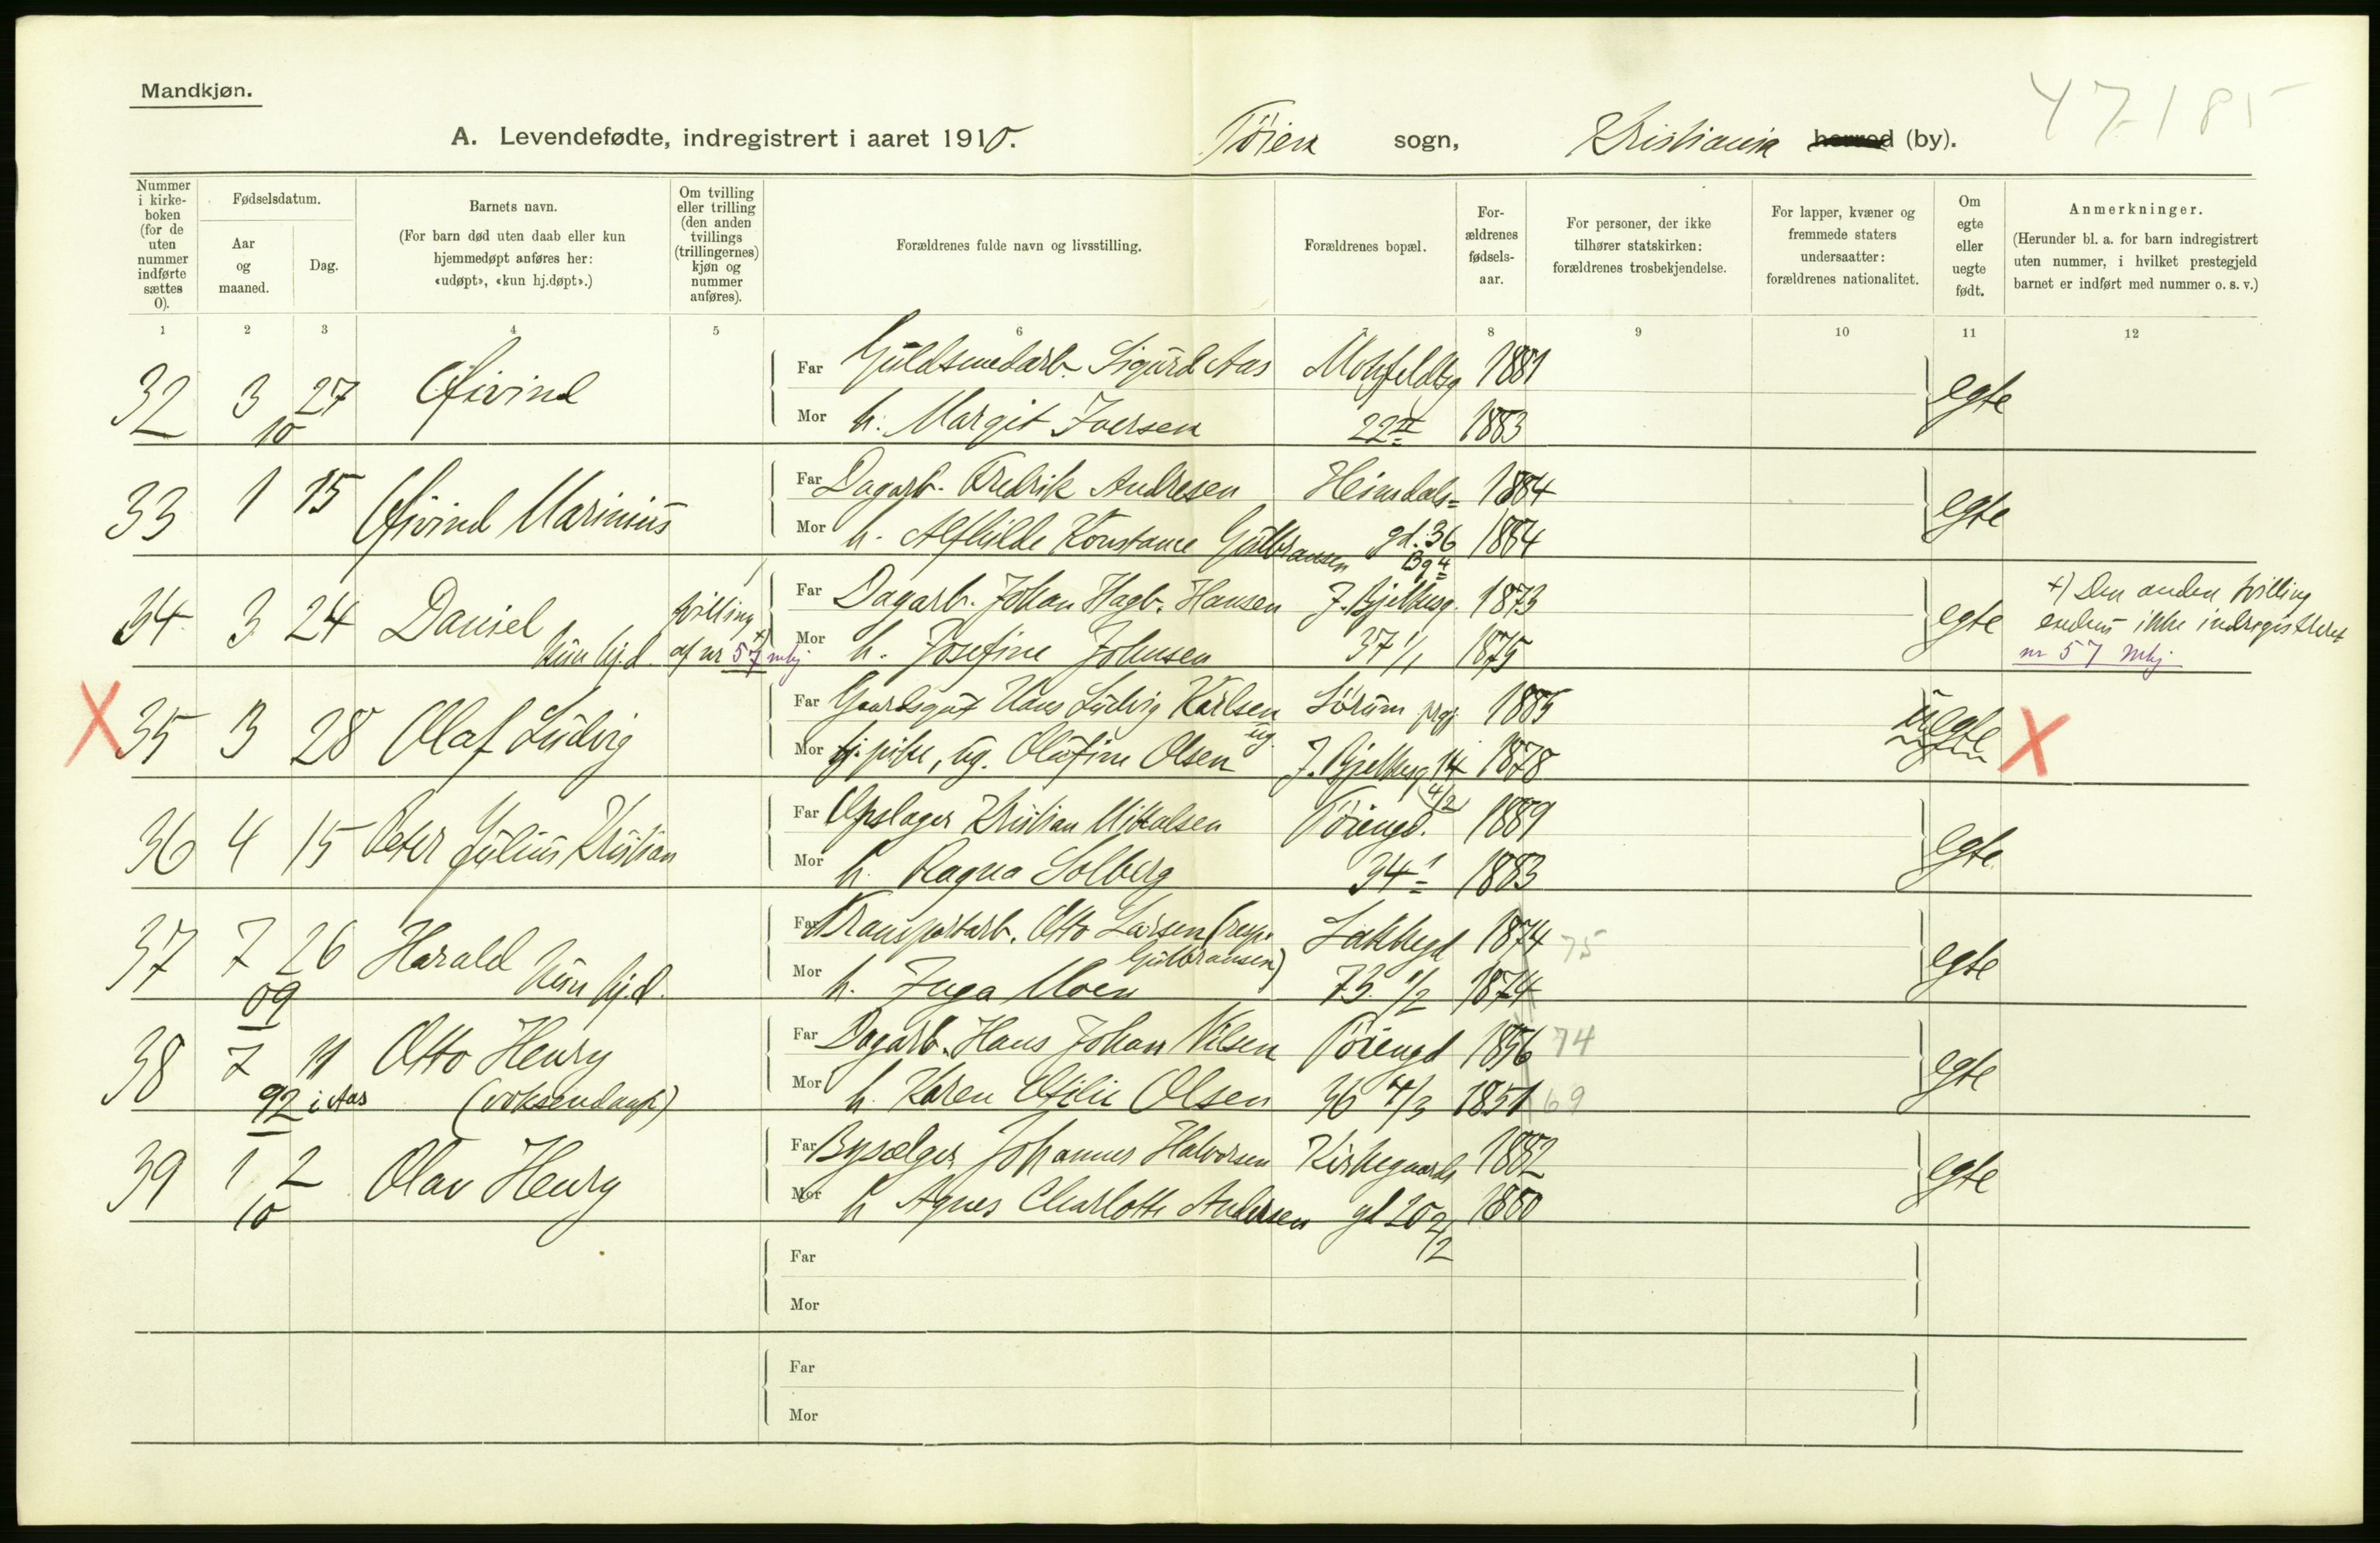 Mandkjøn.
47-185
A. Levendefødte, indregistrert i aaret 1910. Töien sogn, Kristiania herred (by).
Nummer i kirkeboken (for de uten nummer indførte sættes 0).
Fødselsdatum.
Aar og maaned.
Dag.
Barnets navn.
(For barn død uten daab eller kun hjemmedøpt anføres her: «udøpt», «kun hj.døpt».)
Om tvilling eller trilling (den anden tvillings (trillingernes) kjøn og nummer anføres).
Forældrenes fulde navn og livsstilling.
Forældrenes bopæl.
Forældrenes fødselsaar.
For personer, der ikke tilhører statskirken: forældrenes trosbekjendelse.
For lapper, kvæner og fremmede staters undersaatter: forældrenes nationalitet.
Om egte eller uegte født.
Anmerkninger.
(Herunder bl. a. for barn indregistrert uten nummer, i hvilket prestegjeld barnet er indført med nummer o. s. v.)
1 2 3 4 5 6 7 8 9 10 11 12
32 3/10 27 Øivind
Far Guldsmedarb. Sigurd Aas Mohfeldtsg 1881
Mor h. Margit Iversen 22 II 1883
egte
33 1 15 Øivind Marinius
Far Dagarb. Fredrik Andresen Heimdals- 1884
Mor h. Alfhilde Konstance Gulbransen gd. 36 Bg 4 1884
egte
34 3 24 Daniel kun hj.d. tvilling +) af nr 57 mkj
Far Dagarb. Johan Hagb. Hansen J. Bjelkesg. 1873
Mor h. Josefine Johnsen 37 1/1 1875
egte
+) Den anden tvilling
endnu ikke indregistreret
nr 57 mkj
X 35 3 28 Olaf Ludvig
Far Gaardsgut Hans Ludvig Karlsen ug. Sörum prgj. 1885
Mor tj. pike, ug. Olufine Olsen J. Bjelkesg 14 4/2 1878
uegte X
36 4 15 Peter Julius Kristian
Far Opslager Kristian Mikkelsen Töiengd. 1889
Mor h. Ragna Solberg 34 1 1883
egte
37 7/09 26 Harald kun hj.d.
Far Transportarb. Otto Larsen (resp. Gulbransen) Lakkegd 1874 75
Mor h. Inga Moen 73 1/2 1874
egte
38 7/92 11 i Aas Otto Henry (voksendaap)
Far Dagarb. Hans Johan Nilsen Töiengd 1856 74
Mor h. Karen Otilie Olsen 36 4/3 1851 69
egte
39 1/10 2 Olav Henry
Far Bysælger Johannes Halvorsen Kirkegaards 1882
Mor h Agnes Charlotte Andersen gd 20 2/2 1880
egte
Far
Mor
Far
Mor